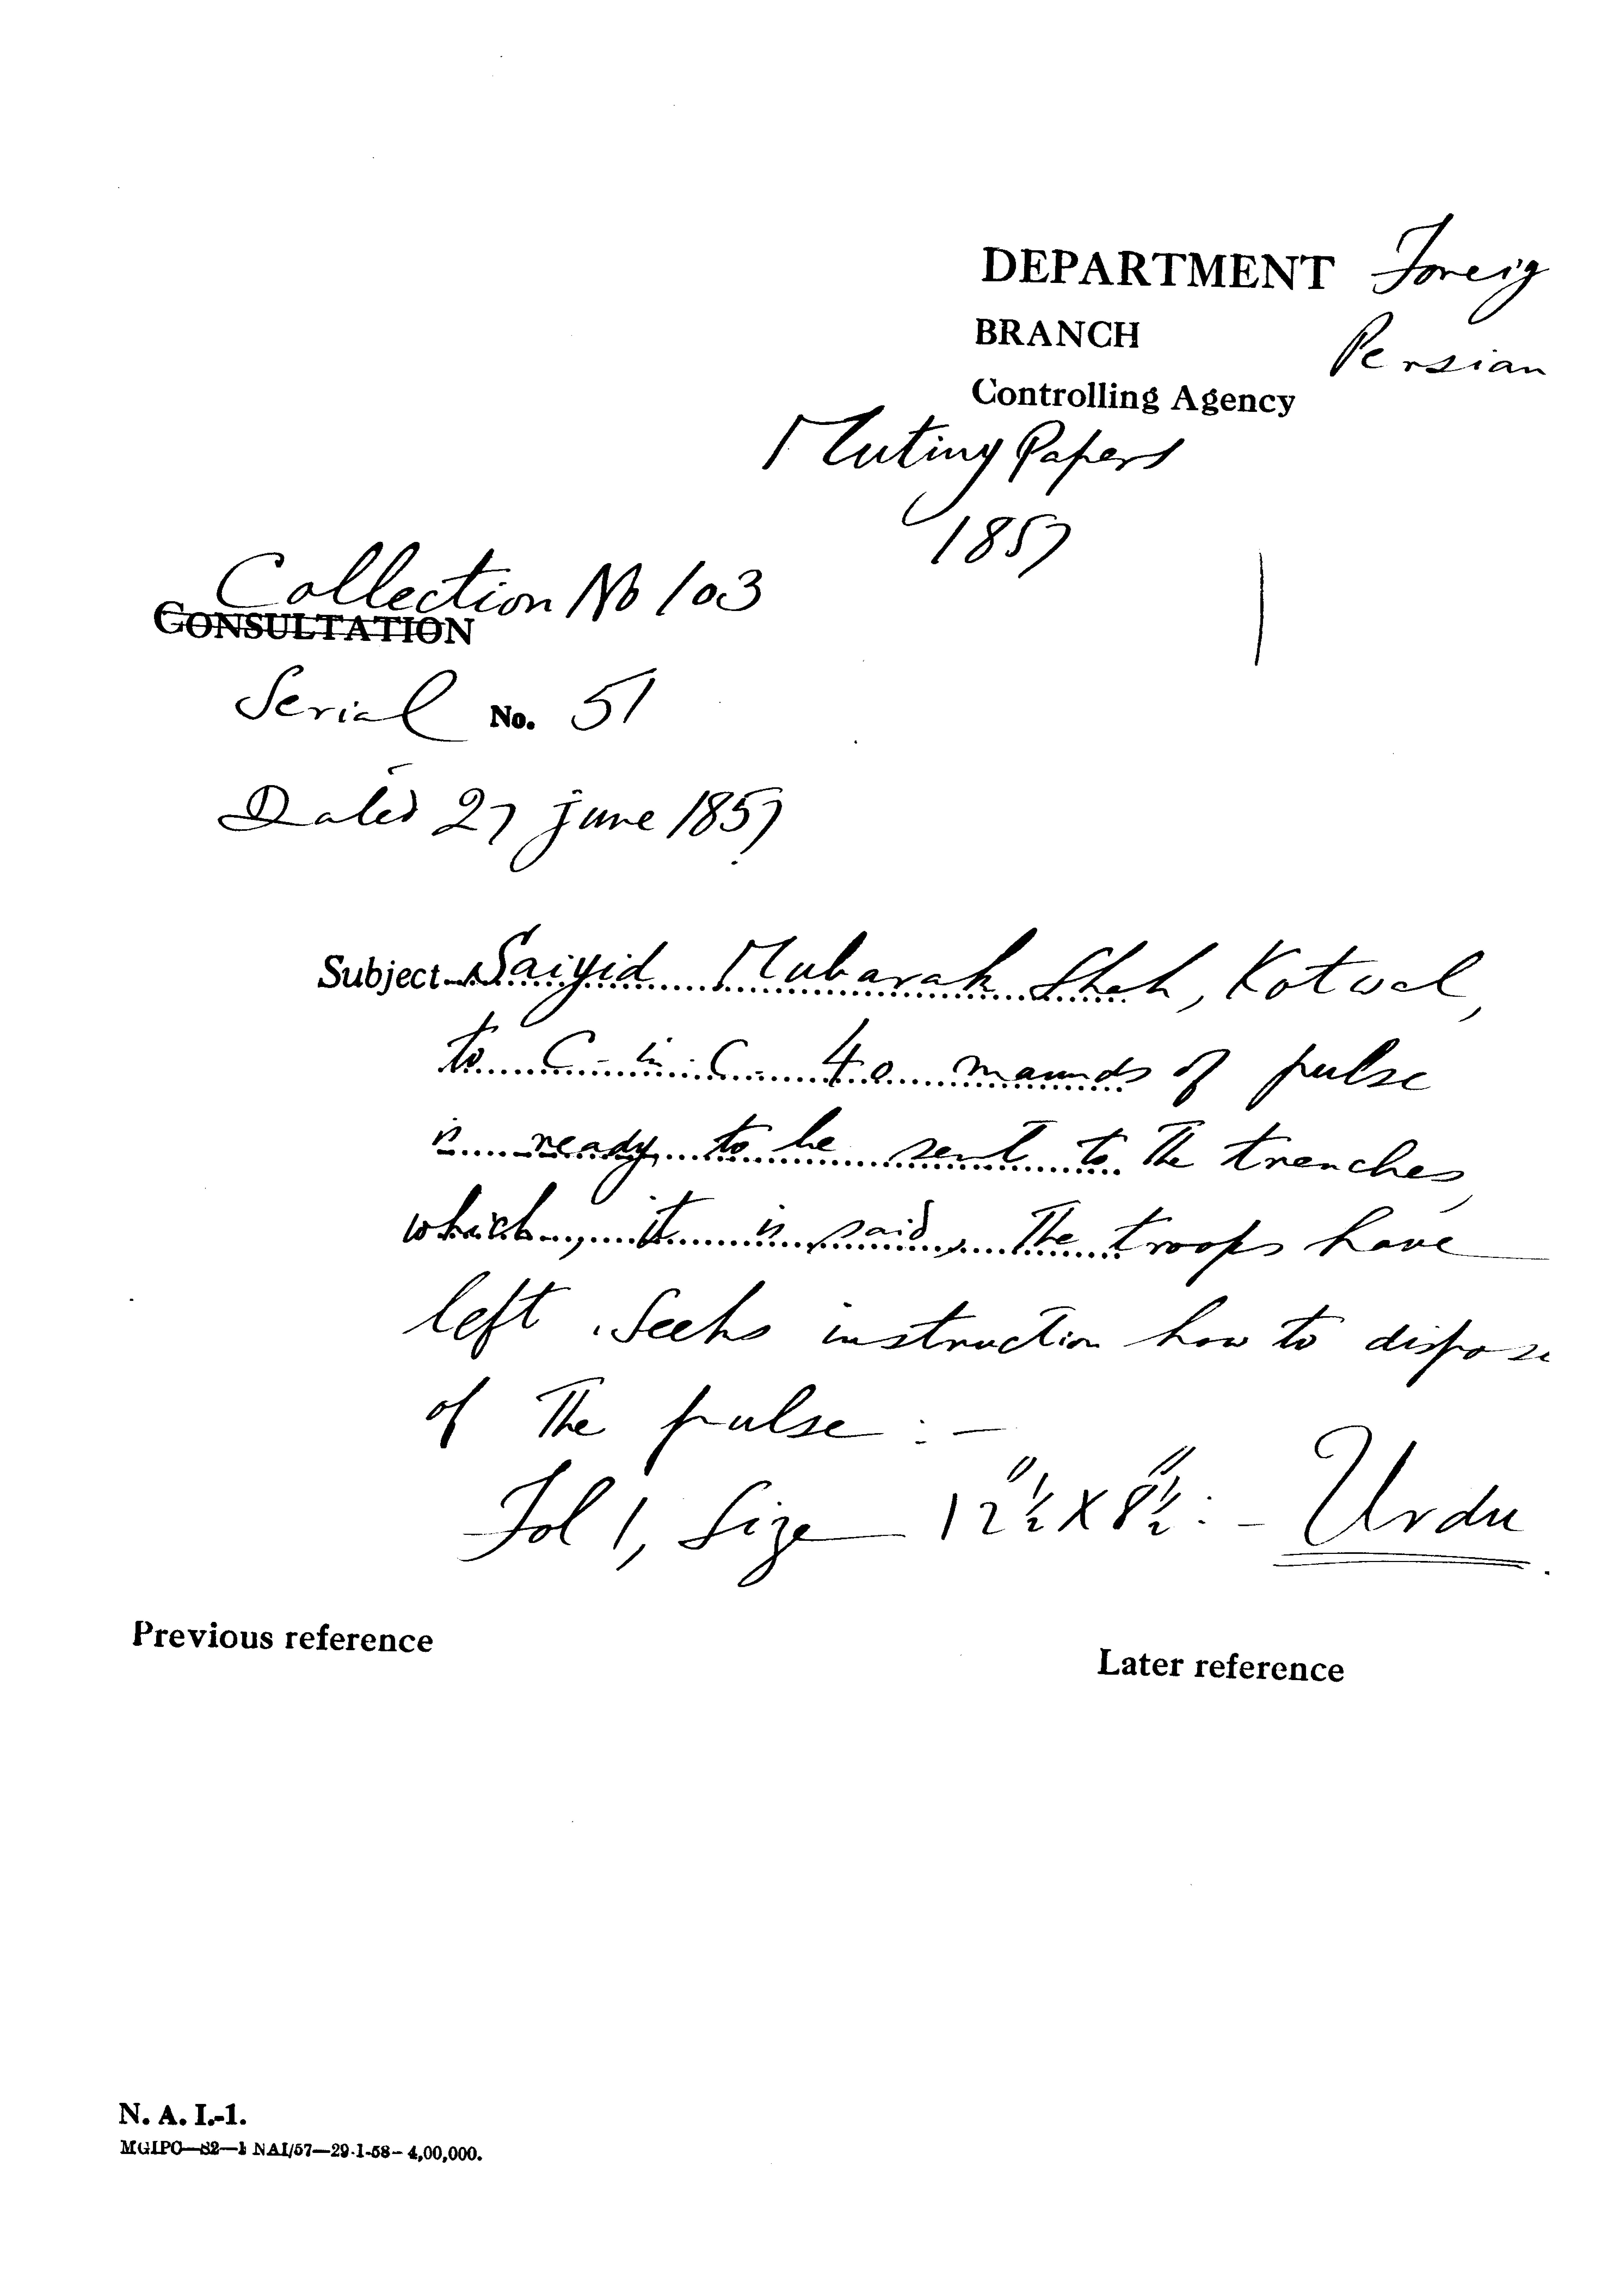 DEPARTMENT Foreig
BRANCH Persian
Controlling Agency
Mutiny Papers
1857
Collection No 103
CONSULTATION
Serial No. 51
Dated 27 June 1857
Subject Saiyid Mubarak Shah, Kotwal,
to C-in-C- 40 maunds of pulse
is ready to be sent to The trenches,
which, it is said, The troops have
left. Seeks instruction how to dispose
of The pulse :-
Fol 1, Size 12"½ X 8"½ :- Urdu.
Previous reference
Later reference
N. A. I.-1.
MGIPC—S2—1 NAI/57—29-1-58—4,00,000.